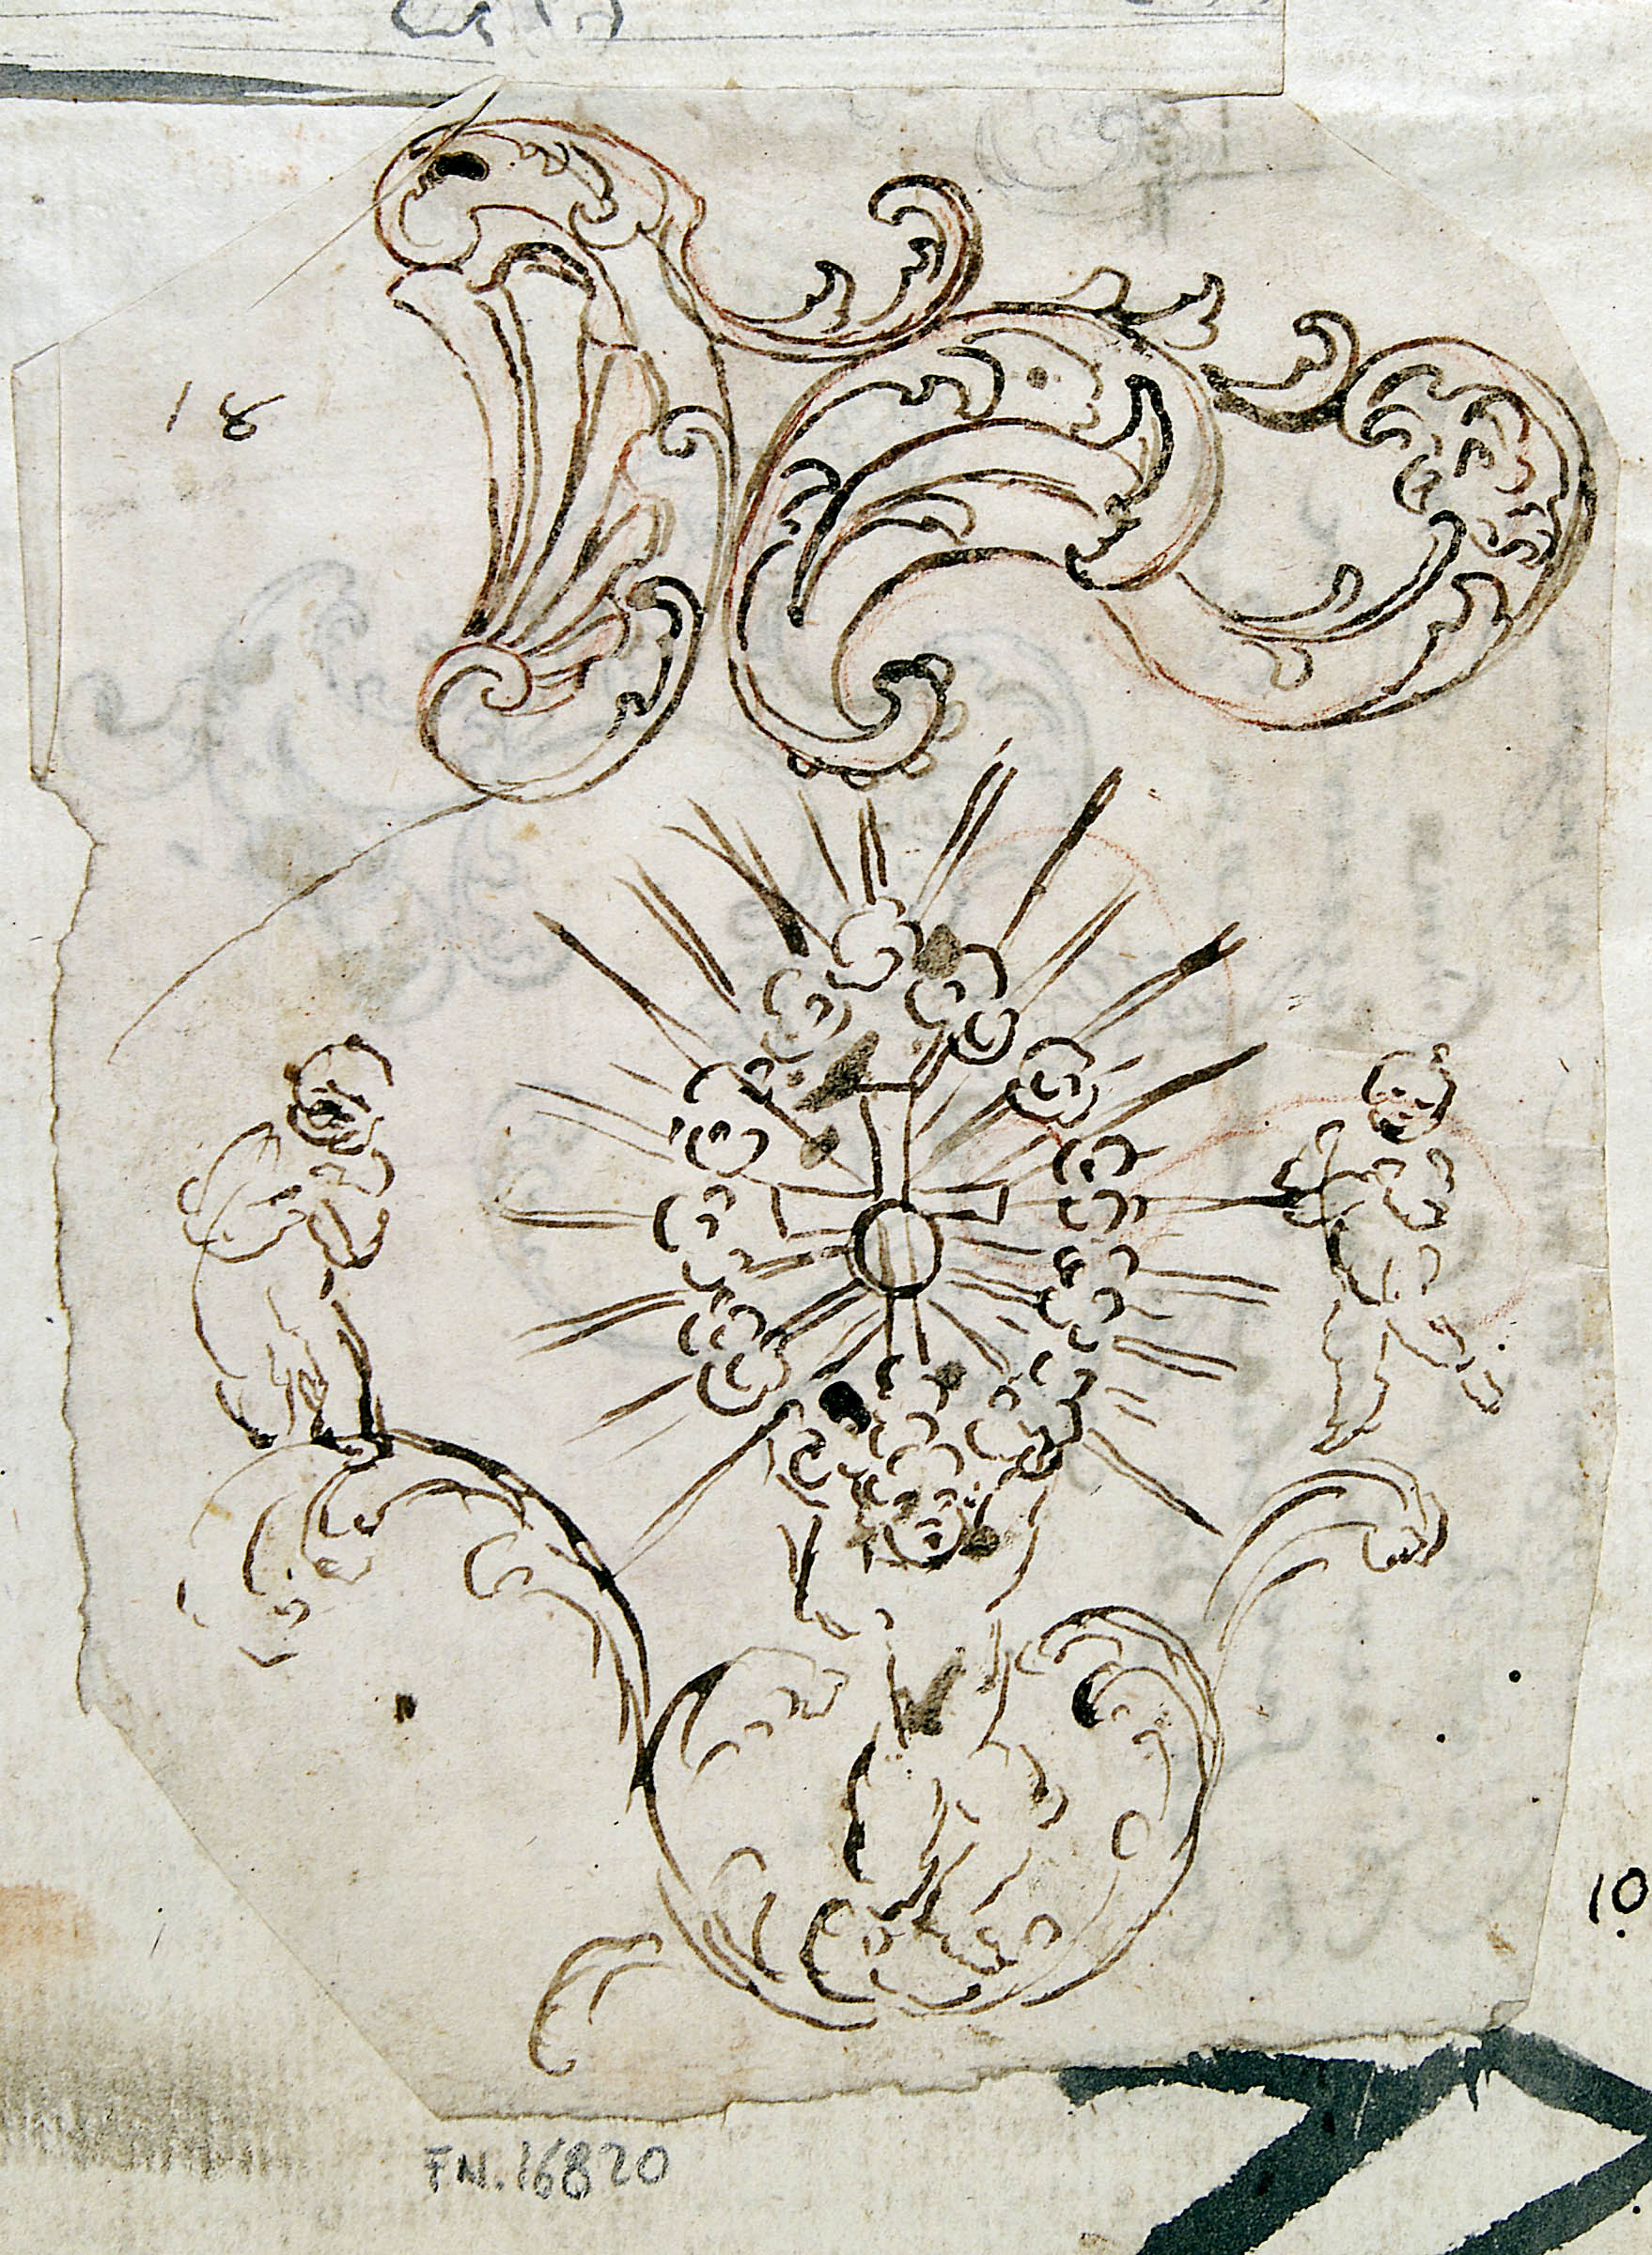 18
10
FN.16820